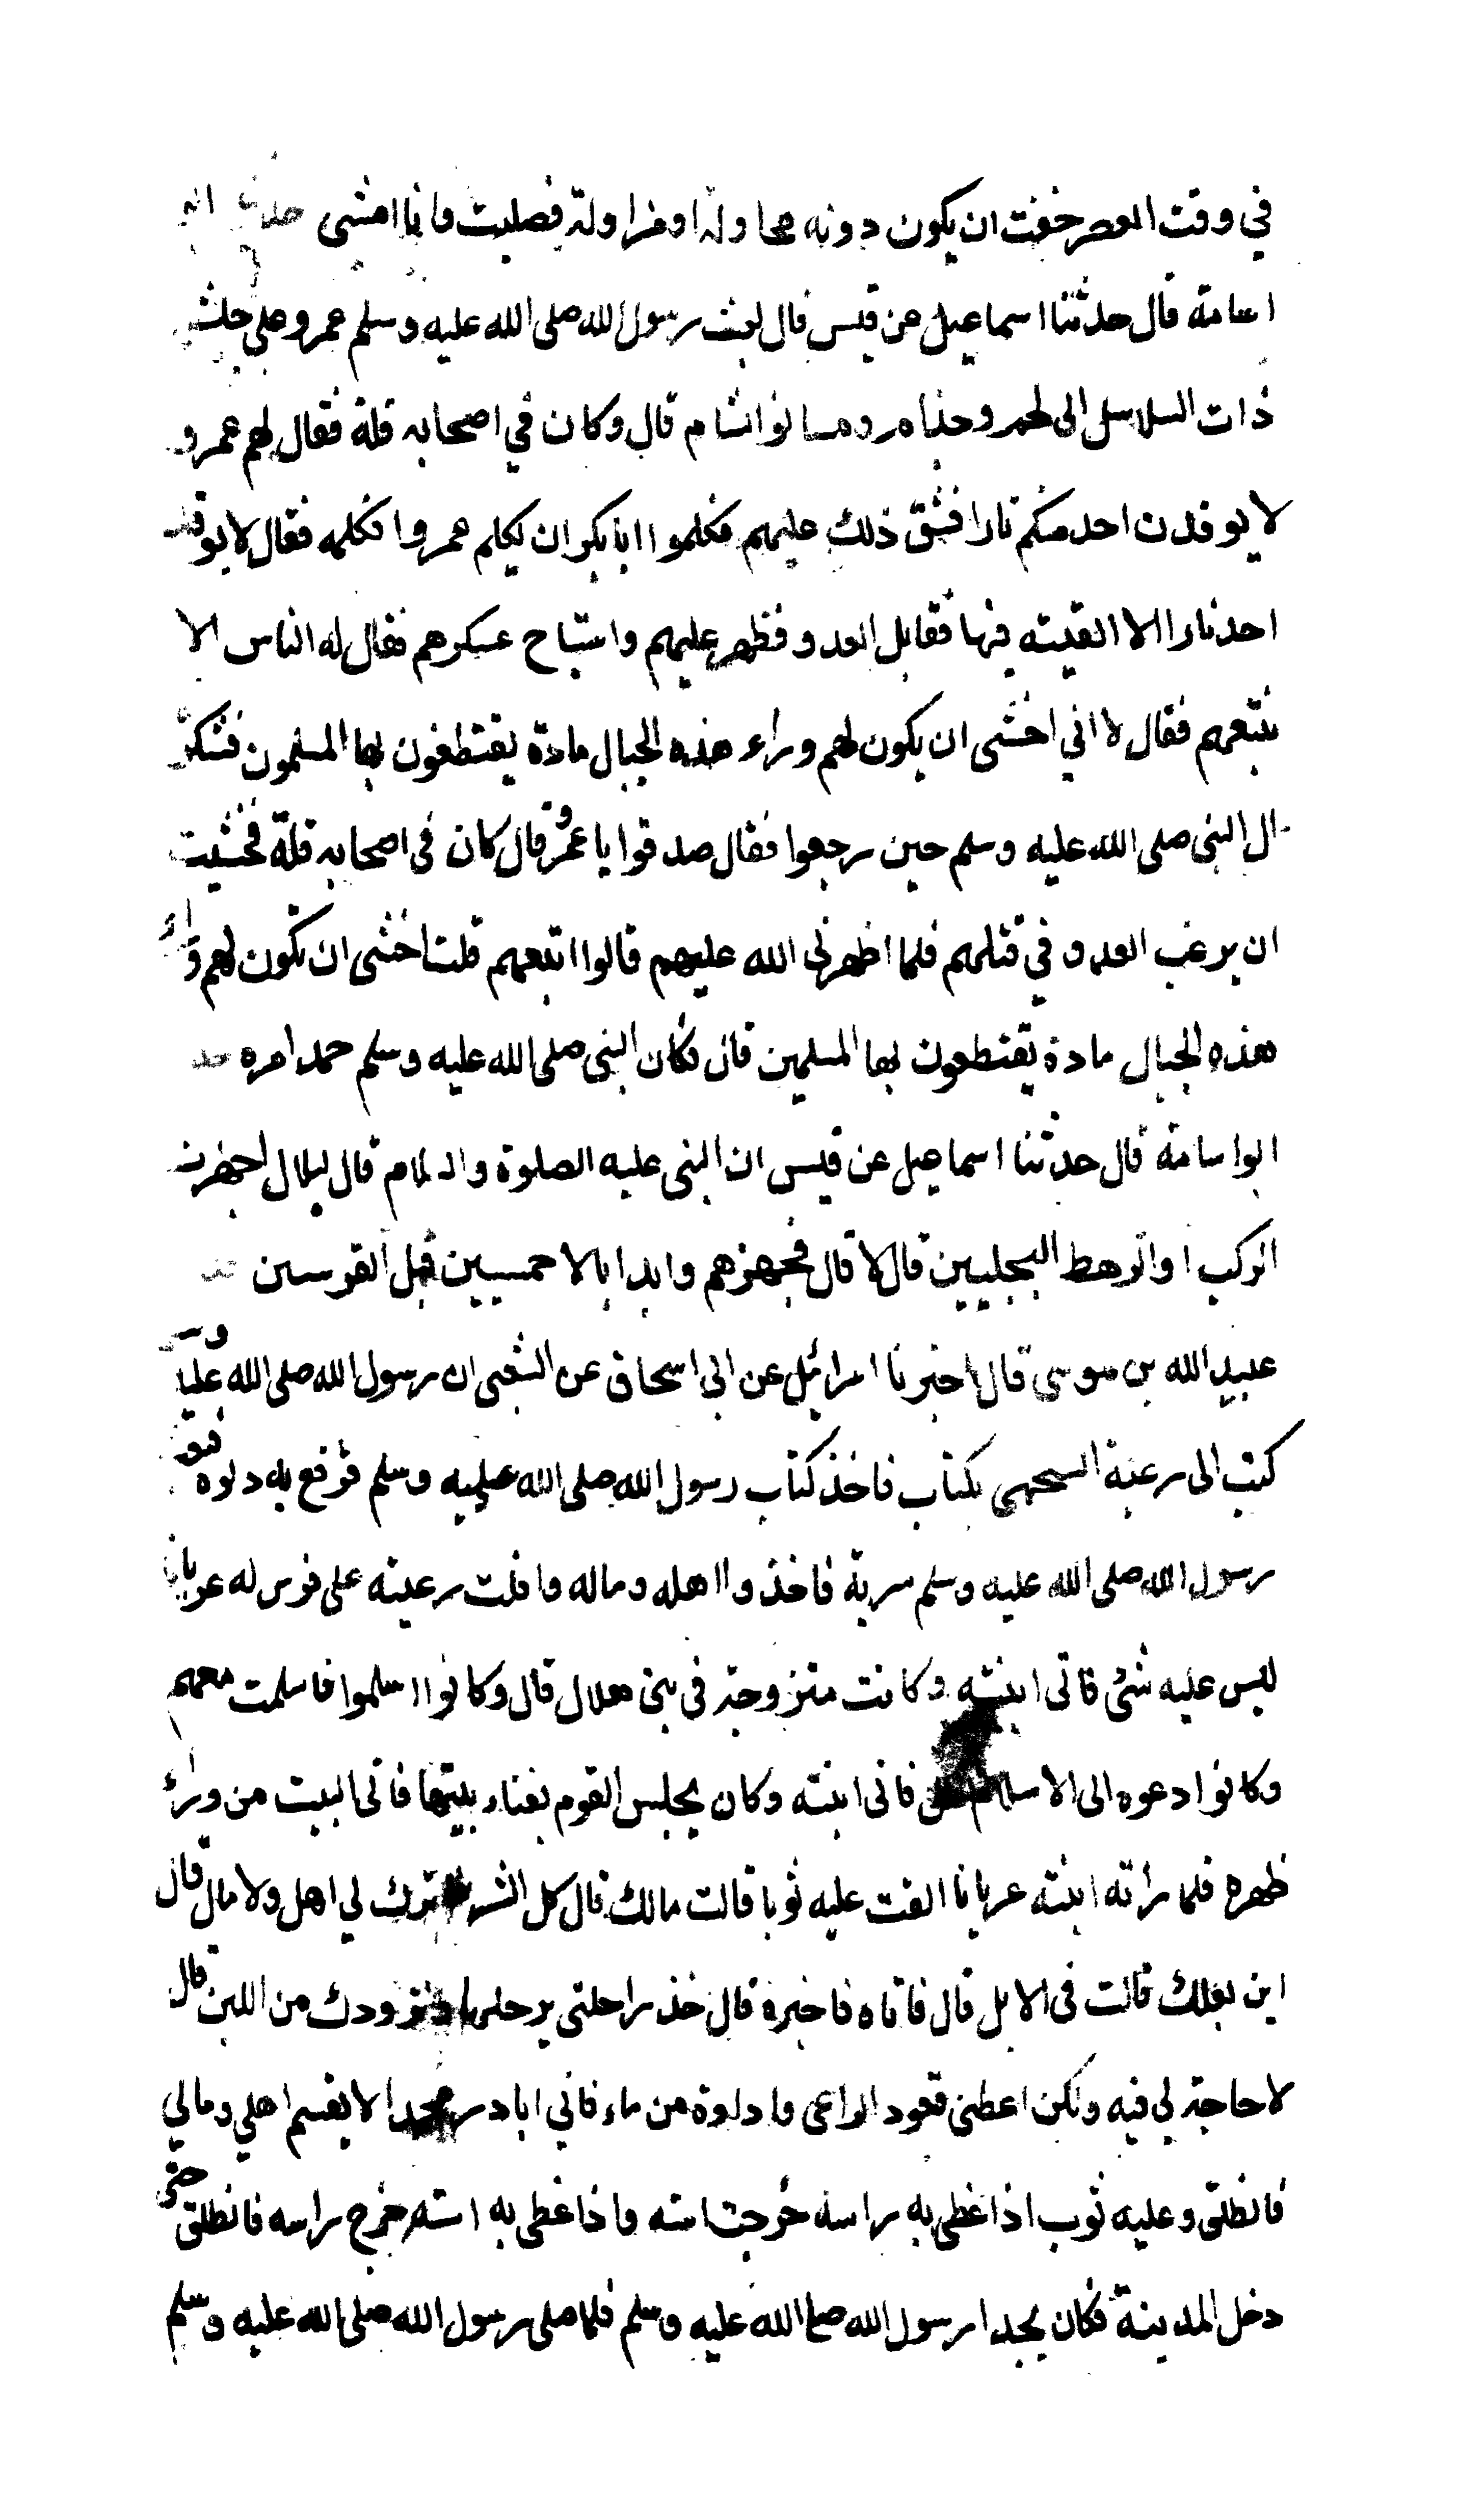 في وقت العصر خفت ان يكون دونه محاولة او مزاولة فصليت وانا امشي حدثنا ابو
اسامة قال حدثنا اسماعيل عن قيس قال بعث رسول الله صلى الله عليه وسلم عمرو على جيش
ذات السلاسل الى لخم وجذام ومسانو الشام قال وكان في اصحابه قلة فقال لهم عمرو
لا يوقدن احد منكم نارا فشق ذلك عليهم فكلموا ابا بكر ان يكلم عمروا فكلمه فقال لا يوقد
احد نارا الا القيته فيها فقابل العدو فظهر عليهم واستباح عسكرهم فقال له الناس الا
نتبعهم فقال لا اني اخشى ان يكون لهم وراء هذه الجبال مادة يقتطعون بها المسلمون فشكوه
الى النبي صلى الله عليه وسلم حين رجعوا فقال صدقوا يا عمرو قال كان في اصحابه قلة فخشيت
ان يرغب العدو في قتلهم فلما اظهرني الله عليهم قالوا اتبعهم قلت اخشى ان تكون لهم وراء
هذه الجبال مادة يقتطعون بها المسلمين قال فكان النبي صلى الله عليه وسلم حمد امره
ابو اسامة قال حدثنا اسماعيل عن قيس ان النبي عليه الصلوة والسلام قال لبلال اجهزت
الركب او الرهط البجليين قال لا قال فجهزهم وابدا بالاحمسيين قبل القوسين
عبيد الله بن موسى قال اخبرنا اسرائيل عن ابي اسحاق عن الشعبي ان رسول الله صلى الله عليه وسلم
كتب الى رعية السحيمي بكتاب فاخذ كتاب رسول الله صلى الله عليه وسلم فرقع به دلوه فبعث
رسول الله صلى الله عليه وسلم سرية فاخذوا اهله وماله وافلت رعية على فرس له عريانا
ليس عليه شئ فاتى ابنته وكانت متزوجة في بني هلال قال وكانوا اسلموا فاسلمت معهم
وكانوا دعوه الى الاسلام قال فاتى ابنته وكان يجلس القوم بفناء بيتها فاتى البيت من وراء
ظهره فلما رأته ابنته عريانا القت عليه ثوبا قالت مالك قال كل الشر ما ترك لي اهل ولا مال قال
اين بعلك قالت في الابل قال فاتاه فاخبره قال خذ راحلتي برحلها ونزودك من اللبن قال
لا حاجة لي فيه ولكن اعطني قعود الراعي وادلوة من ماء فاني ابادر محمدا لا يقسم اهلي ومالي
فانطلق وعليه ثوب اذا غطى به راسه خرجت استه واذا غطى به استه خرج راسه فانطلق حتى
دخل المدينة فكان بحدا رسول الله صلى الله عليه وسلم فلما صلى رسول الله صلى الله عليه وسلم